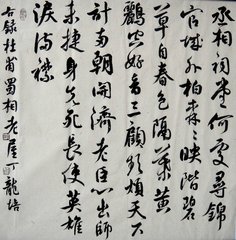 丞相祠堂何處尋錦
官城外柏森々映階碧
草自春色隔葉黃
鸝空好音三顧頻煩天下
計兩朝開濟老臣心出師
未捷身先死長使英雄
淚滿襟
右錄杜甫蜀相